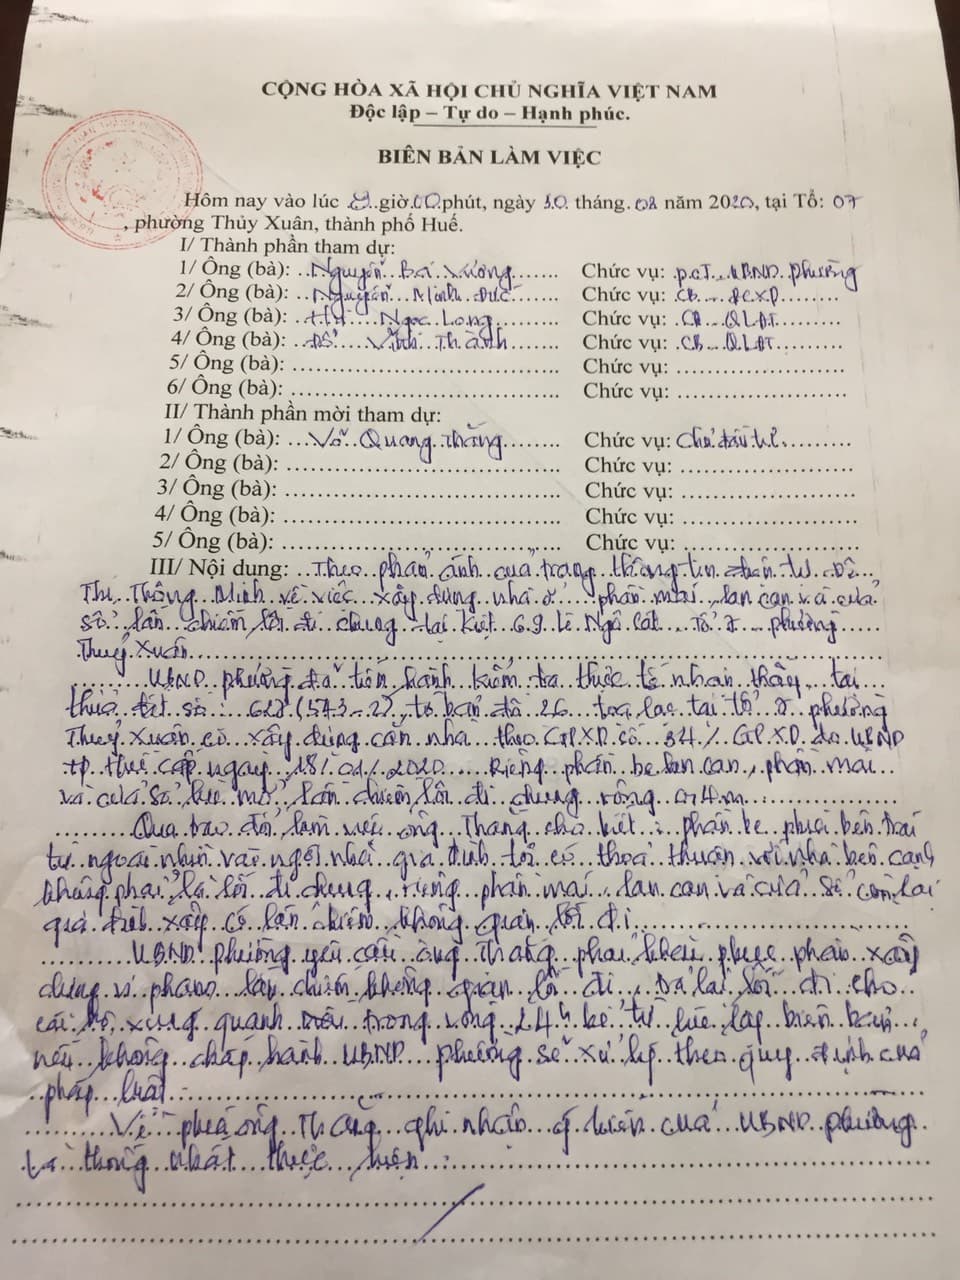 CỘNG HÒA XÃ HỘI CHỦ NGHĨA VIỆT NAM
Độc lập – Tự do – Hạnh phúc.
BIÊN BẢN LÀM VIỆC
Hôm nay vào lúc giờ 00 phút, ngày 10 tháng 08 năm 2020, tại Tổ: 07
, phường Thủy Xuân, thành phố Huế.
I/ Thành phần tham dự:
1/ Ông (bà): Nguyễn Bá Vương Chức vụ: P.CT UBND phường
2/ Ông (bà): Nguyễn Minh Đức Chức vụ: CB ĐCXD
3/ Ông (bà): Ngọc Long Chức vụ: CB QLĐT
4/ Ông (bà): Đỗ Vĩnh Thành Chức vụ: CB QLĐT
5/ Ông (bà): Chức vụ:
6/ Ông (bà): Chức vụ:
II/ Thành phần mời tham dự:
1/ Ông (bà): Võ Quang Thắng Chức vụ: Chủ đầu tư
2/ Ông (bà): Chức vụ:
3/ Ông (bà): Chức vụ:
4/ Ông (bà): Chức vụ:
5/ Ông (bà): Chức vụ:
III/ Nội dung: Theo phản ánh của trang thông tin điện tử Đô
Thị Thông Minh về việc xây dựng nhà ở phần mái, lan can và cửa
sổ lấn chiếm lối đi chung tại Kiệt 69 Lê Ngô Cát Tổ 7 phường
Thuỷ Xuân
UBND phường đã tiến hành kiểm tra thực tế nhận thấy tại
thửa đất số: 628 (543-2), tờ bản đồ 26 toạ lạc tại tổ 7 phường
Thuỷ Xuân có xây dựng căn nhà theo GPXD số 34/GPXD do UBND
tp Huế cấp ngày 18/01/2020. Riêng phần lan can, phần mái
và cửa sổ lúc mở lấn chiếm lối đi chung rộng 0,4m
Qua trao đổi làm việc ông Thắng cho biết: phần phía bên trái
từ ngoài nhìn vào ngôi nhà gia đình tôi có thoả thuận với nhà bên cạnh
không phải là lối đi chung, riêng phần mái, lan can và cửa sổ còn lại
gia đình xây có lấn chiếm không gian lối đi
UBND phường yêu cầu ông Thắng phải khắc phục phần xây
dựng vi phạm lấn chiếm không gian lối đi, trả lại lối đi cho
các hộ xung quanh trong vòng 24h kể từ lúc lập biên bản,
nếu không chấp hành UBND phường sẽ xử lý theo quy định của
pháp luật.
Về phía ông Thắng ghi nhận ý kiến của UBND phường
và thống nhất thực hiện.